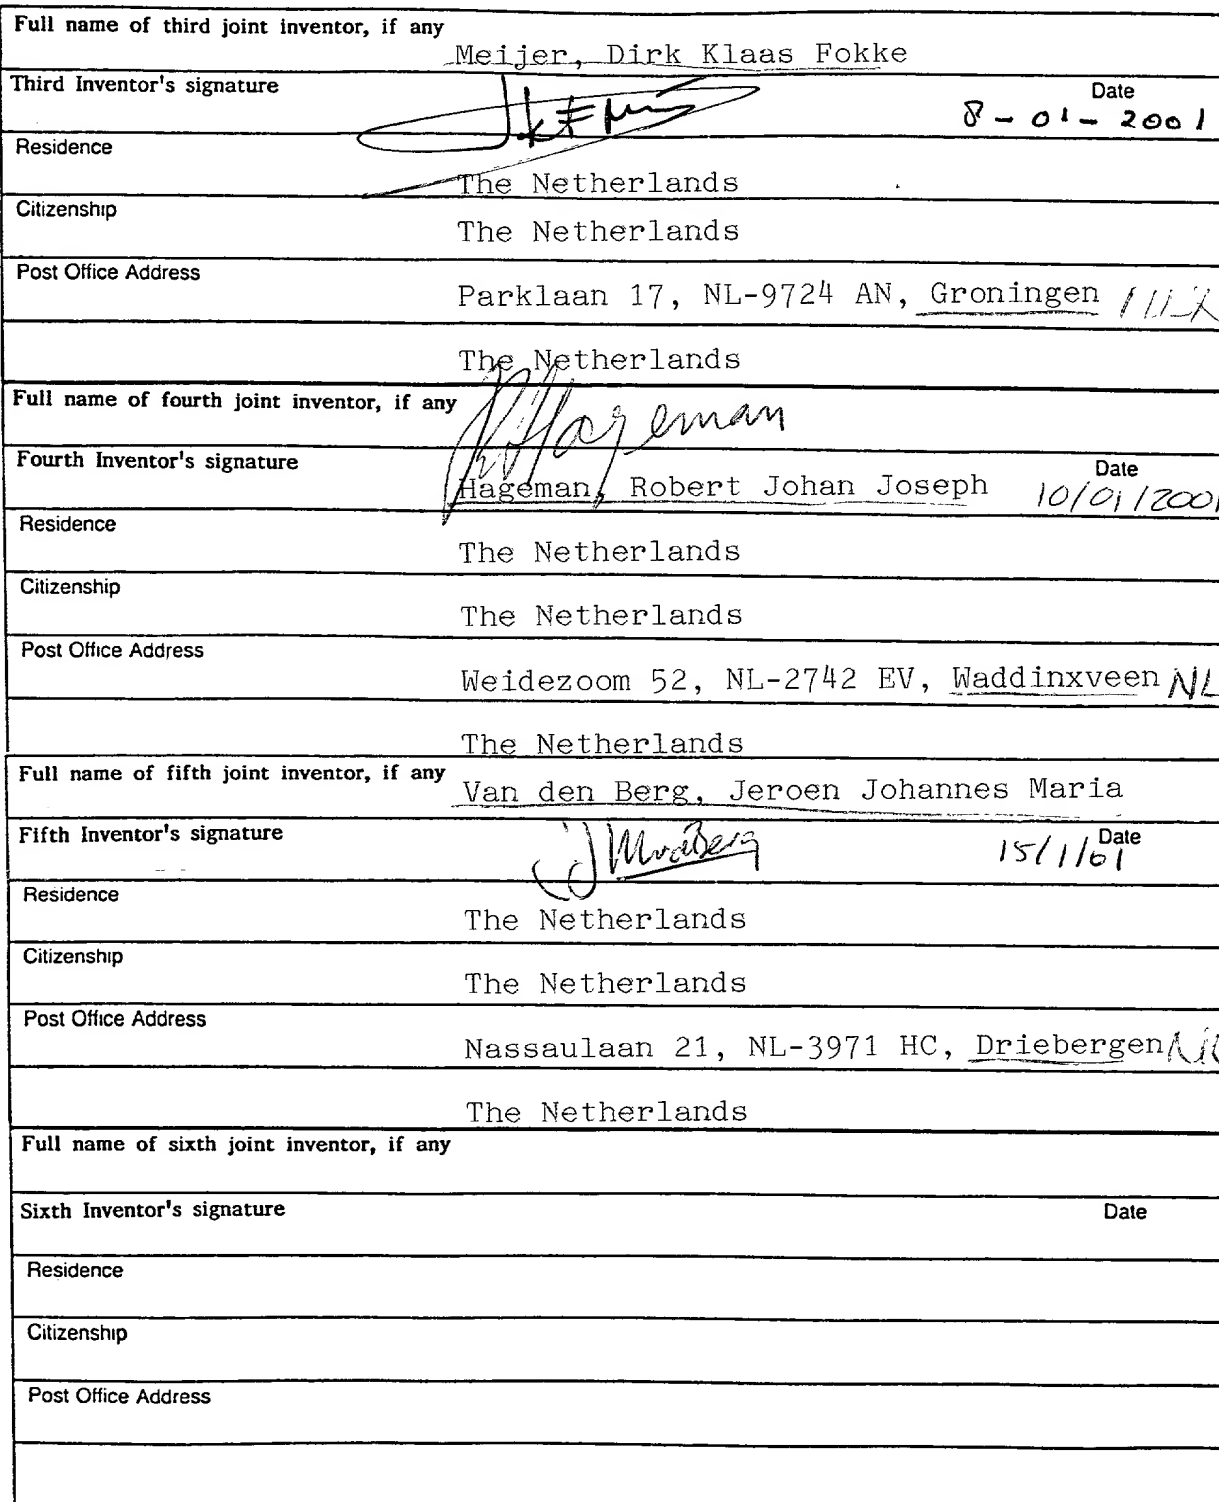 Full name of third joint inventor, if any
Meijer, Dirk Klaas Fokke
Third Inventor's signature
Date
8-01-2001
Residence
The Netherlands
Citizenship
The Netherlands
Post Office Address
Parklaan 17, NL-9724 AN, Groningen
The Netherlands
Full name of fourth joint inventor, if any
Hageman
Fourth Inventor's signature
Date
Hageman, Robert Johan Joseph 10/01/2001
Residence
The Netherlands
Citizenship
The Netherlands
Post Office Address
Weidezoom 52, NL-2742 EV, Waddinxveen NL
The Netherlands
Full name of fifth joint inventor, if any
Van den Berg, Jeroen Johannes Maria
Fifth Inventor's signature
Date
15/1/01
Residence
The Netherlands
Citizenship
The Netherlands
Post Office Address
Nassaulaan 21, NL-3971 HC, Driebergen
The Netherlands
Full name of sixth joint inventor, if any
Sixth Inventor's signature
Date
Residence
Citizenship
Post Office Address